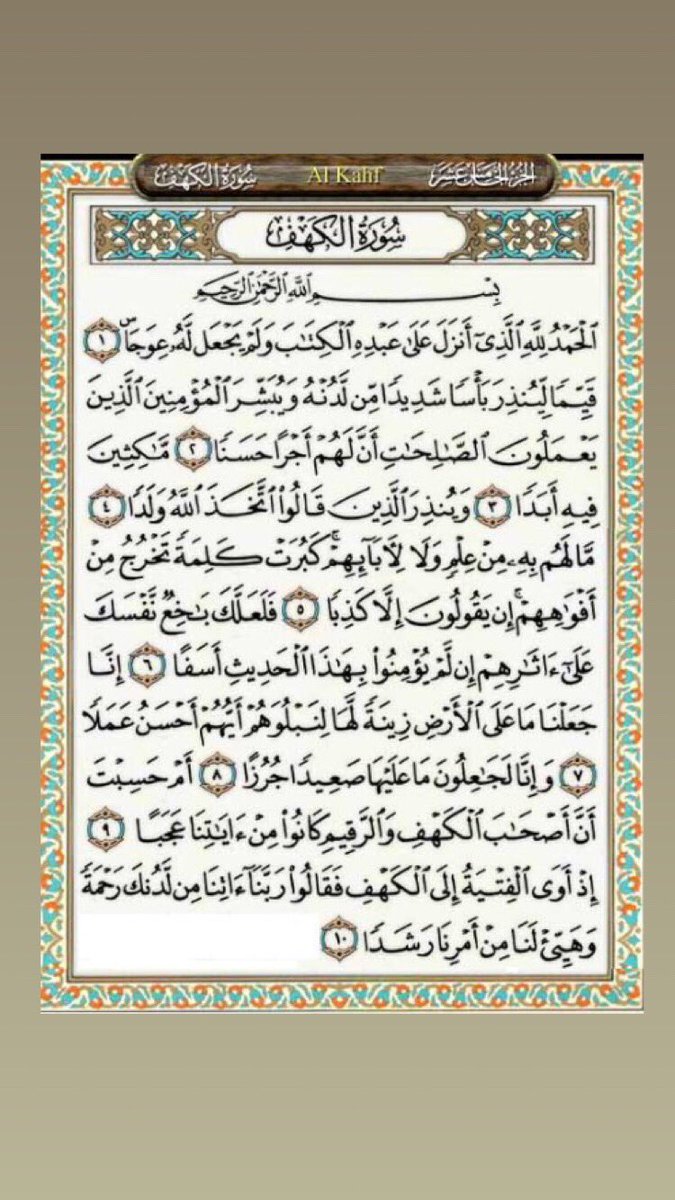 سُورَةُ الكَهْفِ Al Kahf الجُزْءُ الخَامِسُ عَشَرَ
سُورَةُ الكَهْفِ
بِسْمِ ٱللَّهِ ٱلرَّحْمَٰنِ ٱلرَّحِيمِ
ٱلْحَمْدُ لِلَّهِ ٱلَّذِىٓ أَنزَلَ عَلَىٰ عَبْدِهِ ٱلْكِتَٰبَ وَلَمْ يَجْعَل لَّهُۥ عِوَجَاۜ ١
قَيِّمًا لِّيُنذِرَ بَأْسًا شَدِيدًا مِّن لَّدُنْهُ وَيُبَشِّرَ ٱلْمُؤْمِنِينَ ٱلَّذِينَ
يَعْمَلُونَ ٱلصَّٰلِحَٰتِ أَنَّ لَهُمْ أَجْرًا حَسَنًا ٢ مَّٰكِثِينَ
فِيهِ أَبَدًا ٣ وَيُنذِرَ ٱلَّذِينَ قَالُوا۟ ٱتَّخَذَ ٱللَّهُ وَلَدًا ٤
مَّا لَهُم بِهِۦ مِنْ عِلْمٍ وَلَا لِءَابَآئِهِمْ ۚ كَبُرَتْ كَلِمَةً تَخْرُجُ مِنْ
أَفْوَٰهِهِمْ ۚ إِن يَقُولُونَ إِلَّا كَذِبًا ٥ فَلَعَلَّكَ بَٰخِعٌ نَّفْسَكَ
عَلَىٰٓ ءَاثَٰرِهِمْ إِن لَّمْ يُؤْمِنُوا۟ بِهَٰذَا ٱلْحَدِيثِ أَسَفًا ٦ إِنَّا
جَعَلْنَا مَا عَلَى ٱلْأَرْضِ زِينَةً لَّهَا لِنَبْلُوَهُمْ أَيُّهُمْ أَحْسَنُ عَمَلًا
٧ وَإِنَّا لَجَٰعِلُونَ مَا عَلَيْهَا صَعِيدًا جُرُزًا ٨ أَمْ حَسِبْتَ
أَنَّ أَصْحَٰبَ ٱلْكَهْفِ وَٱلرَّقِيمِ كَانُوا۟ مِنْ ءَايَٰتِنَا عَجَبًا ٩
إِذْ أَوَى ٱلْفِتْيَةُ إِلَى ٱلْكَهْفِ فَقَالُوا۟ رَبَّنَآ ءَاتِنَا مِن لَّدُنكَ رَحْمَةً
وَهَيِّئْ لَنَا مِنْ أَمْرِنَا رَشَدًا ١٠